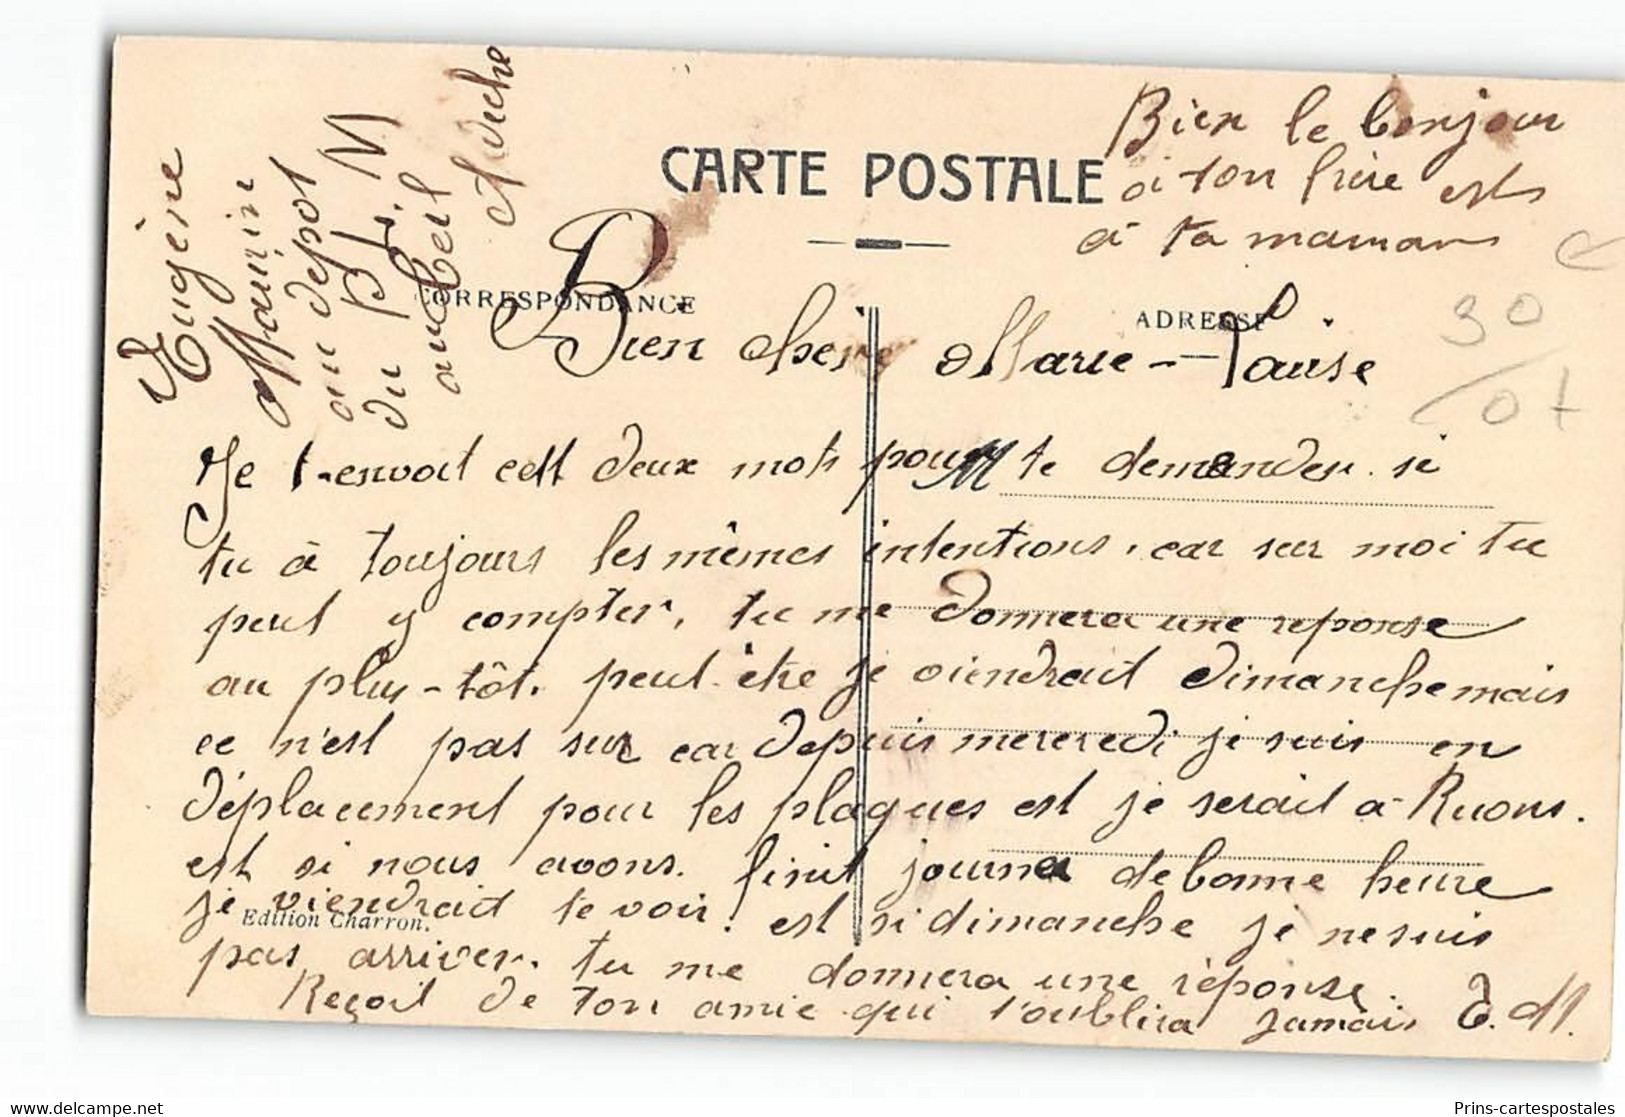 Bien le bonjour
à ton frère est
à ta maman
CARTE POSTALE
Eugène
Maurin
au depot
du Bt. M
aubeil
Ardeche
CORRESPONDANCE
ADRESSE
30
/07
Bien chere Marie-Louise
Je t-envoit cest deux mots pour te demander si
tu à toujours les mêmes intentions, car sur moi tu
peut y compter, tu me donnera une reponse
au plus-tôt, peut être je viendrait dimanche mais
ce n'est pas sur car depuis mercredi je suis en
déplacement pour les plaques est je serait à Ruons.
est si nous avons finit journa de bonne heure
je viendrait te voir! est si dimanche je ne suis
Edition Charron.
pas arriver. tu me donnera une réponse.
Reçoit de ton amie qui t'oublira jamais E. M.
Prins-cartespostales
www.delcampe.net